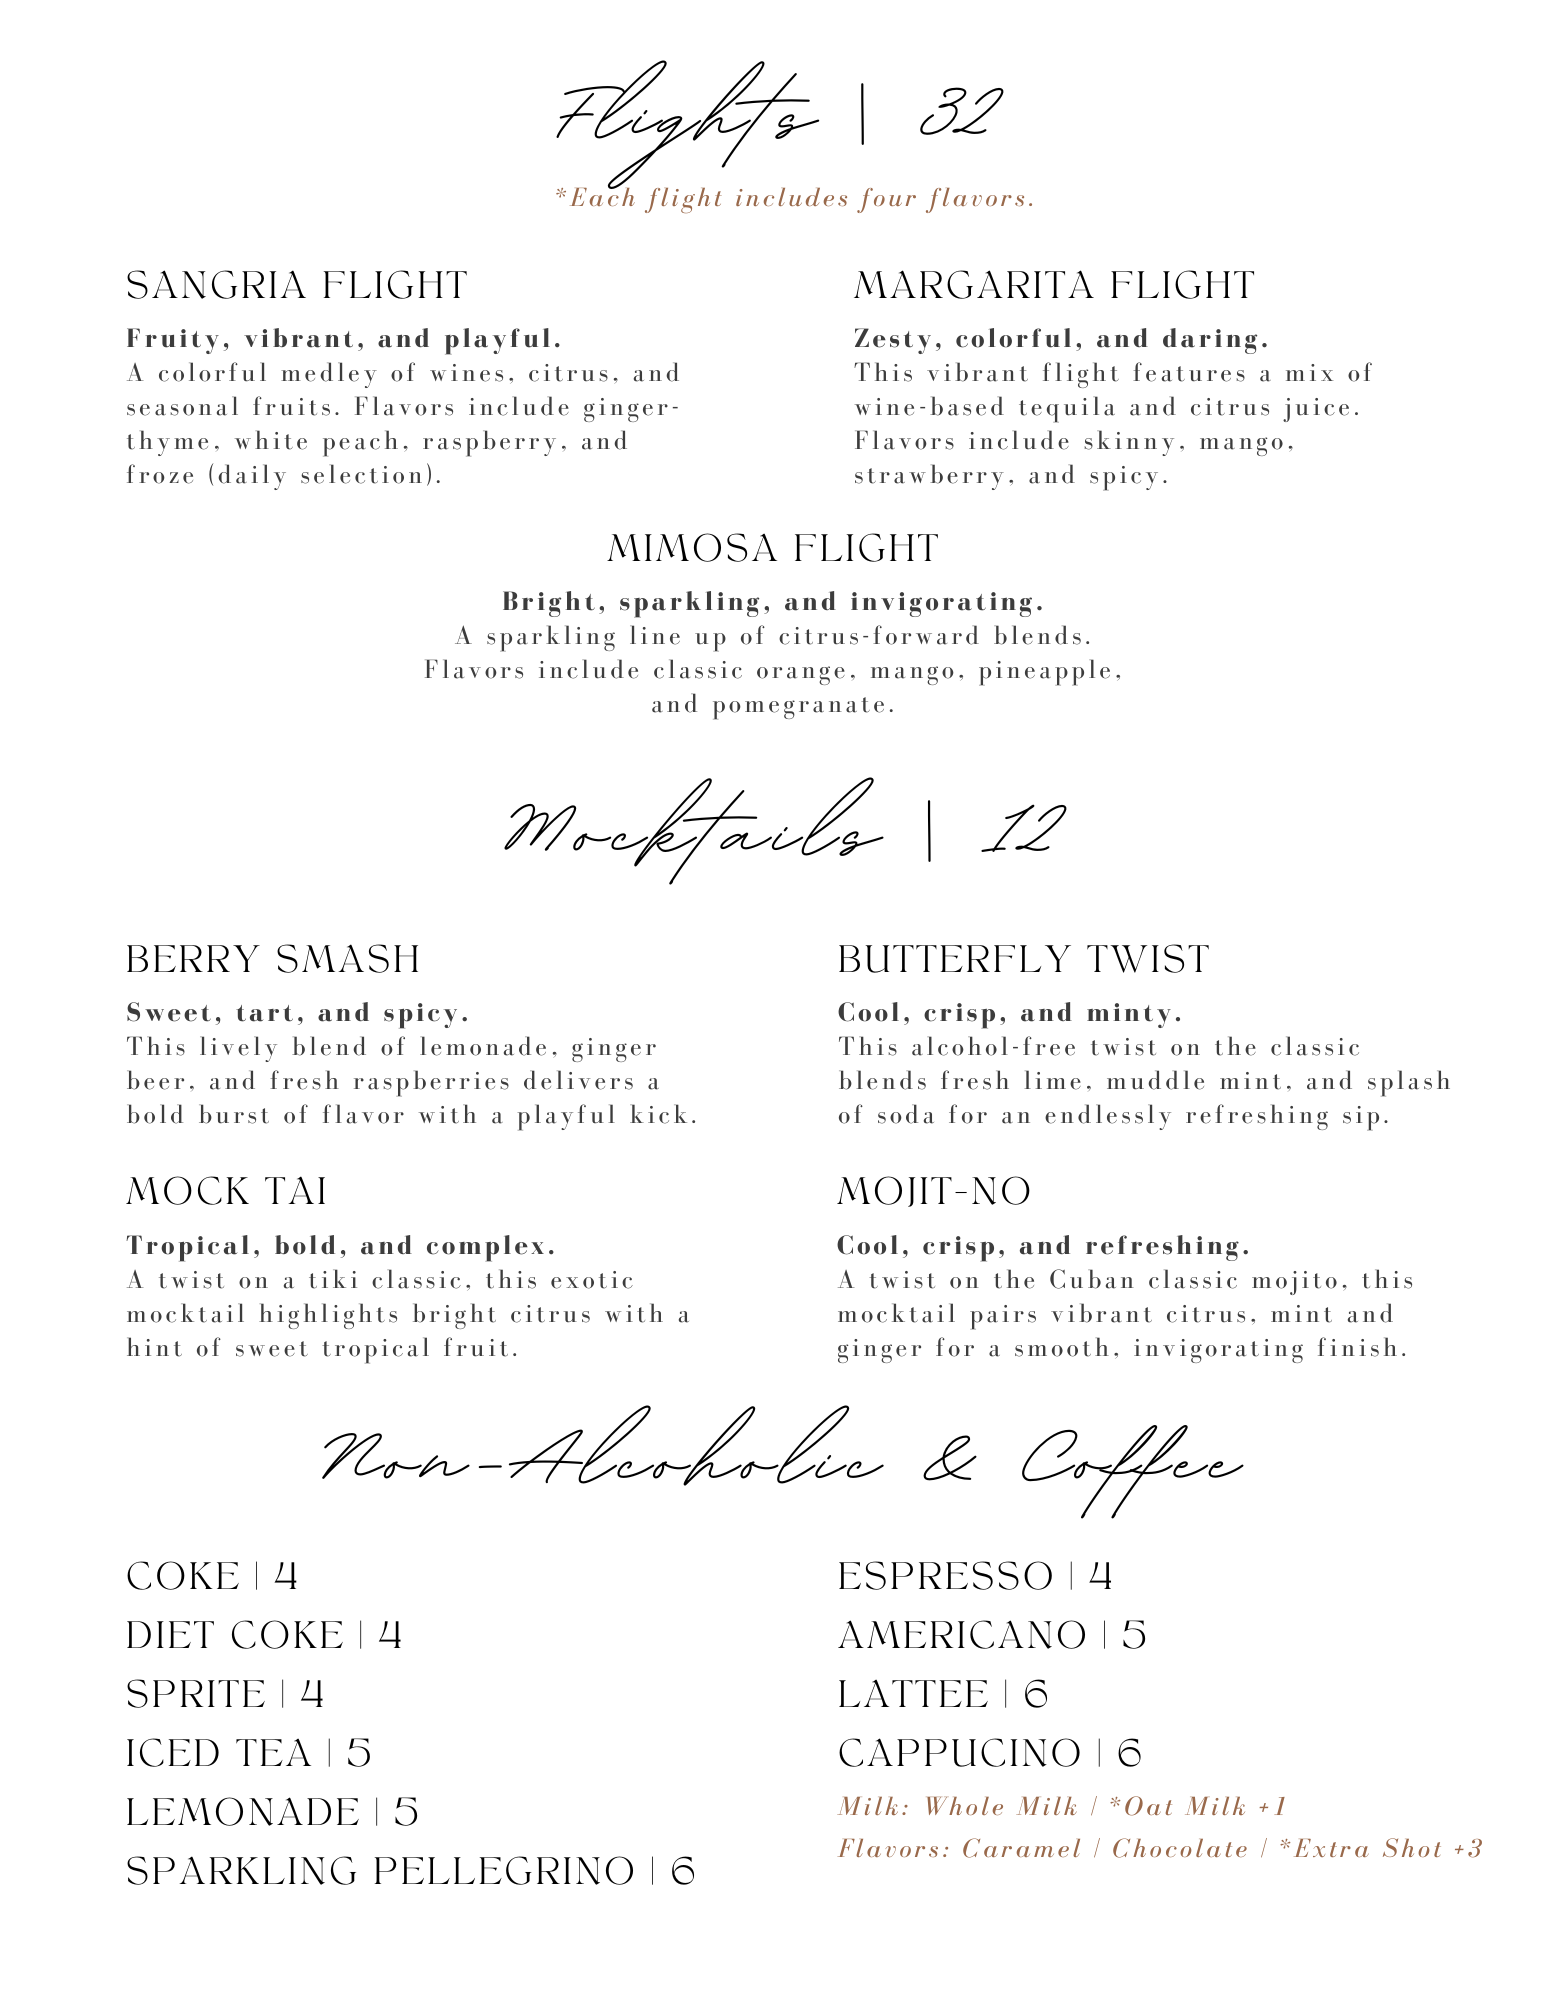 Flights | 32
*Each flight includes four flavors.
SANGRIA FLIGHT
Fruity, vibrant, and playful.
A colorful medley of wines, citrus, and
seasonal fruits. Flavors include ginger-
thyme, white peach, raspberry, and
froze (daily selection).
MARGARITA FLIGHT
Zesty, colorful, and daring.
This vibrant flight features a mix of
wine-based tequila and citrus juice.
Flavors include skinny, mango,
strawberry, and spicy.
MIMOSA FLIGHT
Bright, sparkling, and invigorating.
A sparkling line up of citrus-forward blends.
Flavors include classic orange, mango, pineapple,
and pomegranate.
Mocktails | 12
BERRY SMASH
Sweet, tart, and spicy.
This lively blend of lemonade, ginger
beer, and fresh raspberries delivers a
bold burst of flavor with a playful kick.
BUTTERFLY TWIST
Cool, crisp, and minty.
This alcohol-free twist on the classic
blends fresh lime, muddle mint, and splash
of soda for an endlessly refreshing sip.
MOCK TAI
Tropical, bold, and complex.
A twist on a tiki classic, this exotic
mocktail highlights bright citrus with a
hint of sweet tropical fruit.
MOJIT-NO
Cool, crisp, and refreshing.
A twist on the Cuban classic mojito, this
mocktail pairs vibrant citrus, mint and
ginger for a smooth, invigorating finish.
Non-Alcoholic & Coffee
COKE | 4
DIET COKE | 4
SPRITE | 4
ICED TEA | 5
LEMONADE | 5
SPARKLING PELLEGRINO | 6
ESPRESSO | 4
AMERICANO | 5
LATTEE | 6
CAPPUCINO | 6
Milk: Whole Milk | *Oat Milk +1
Flavors: Caramel | Chocolate | *Extra Shot +3